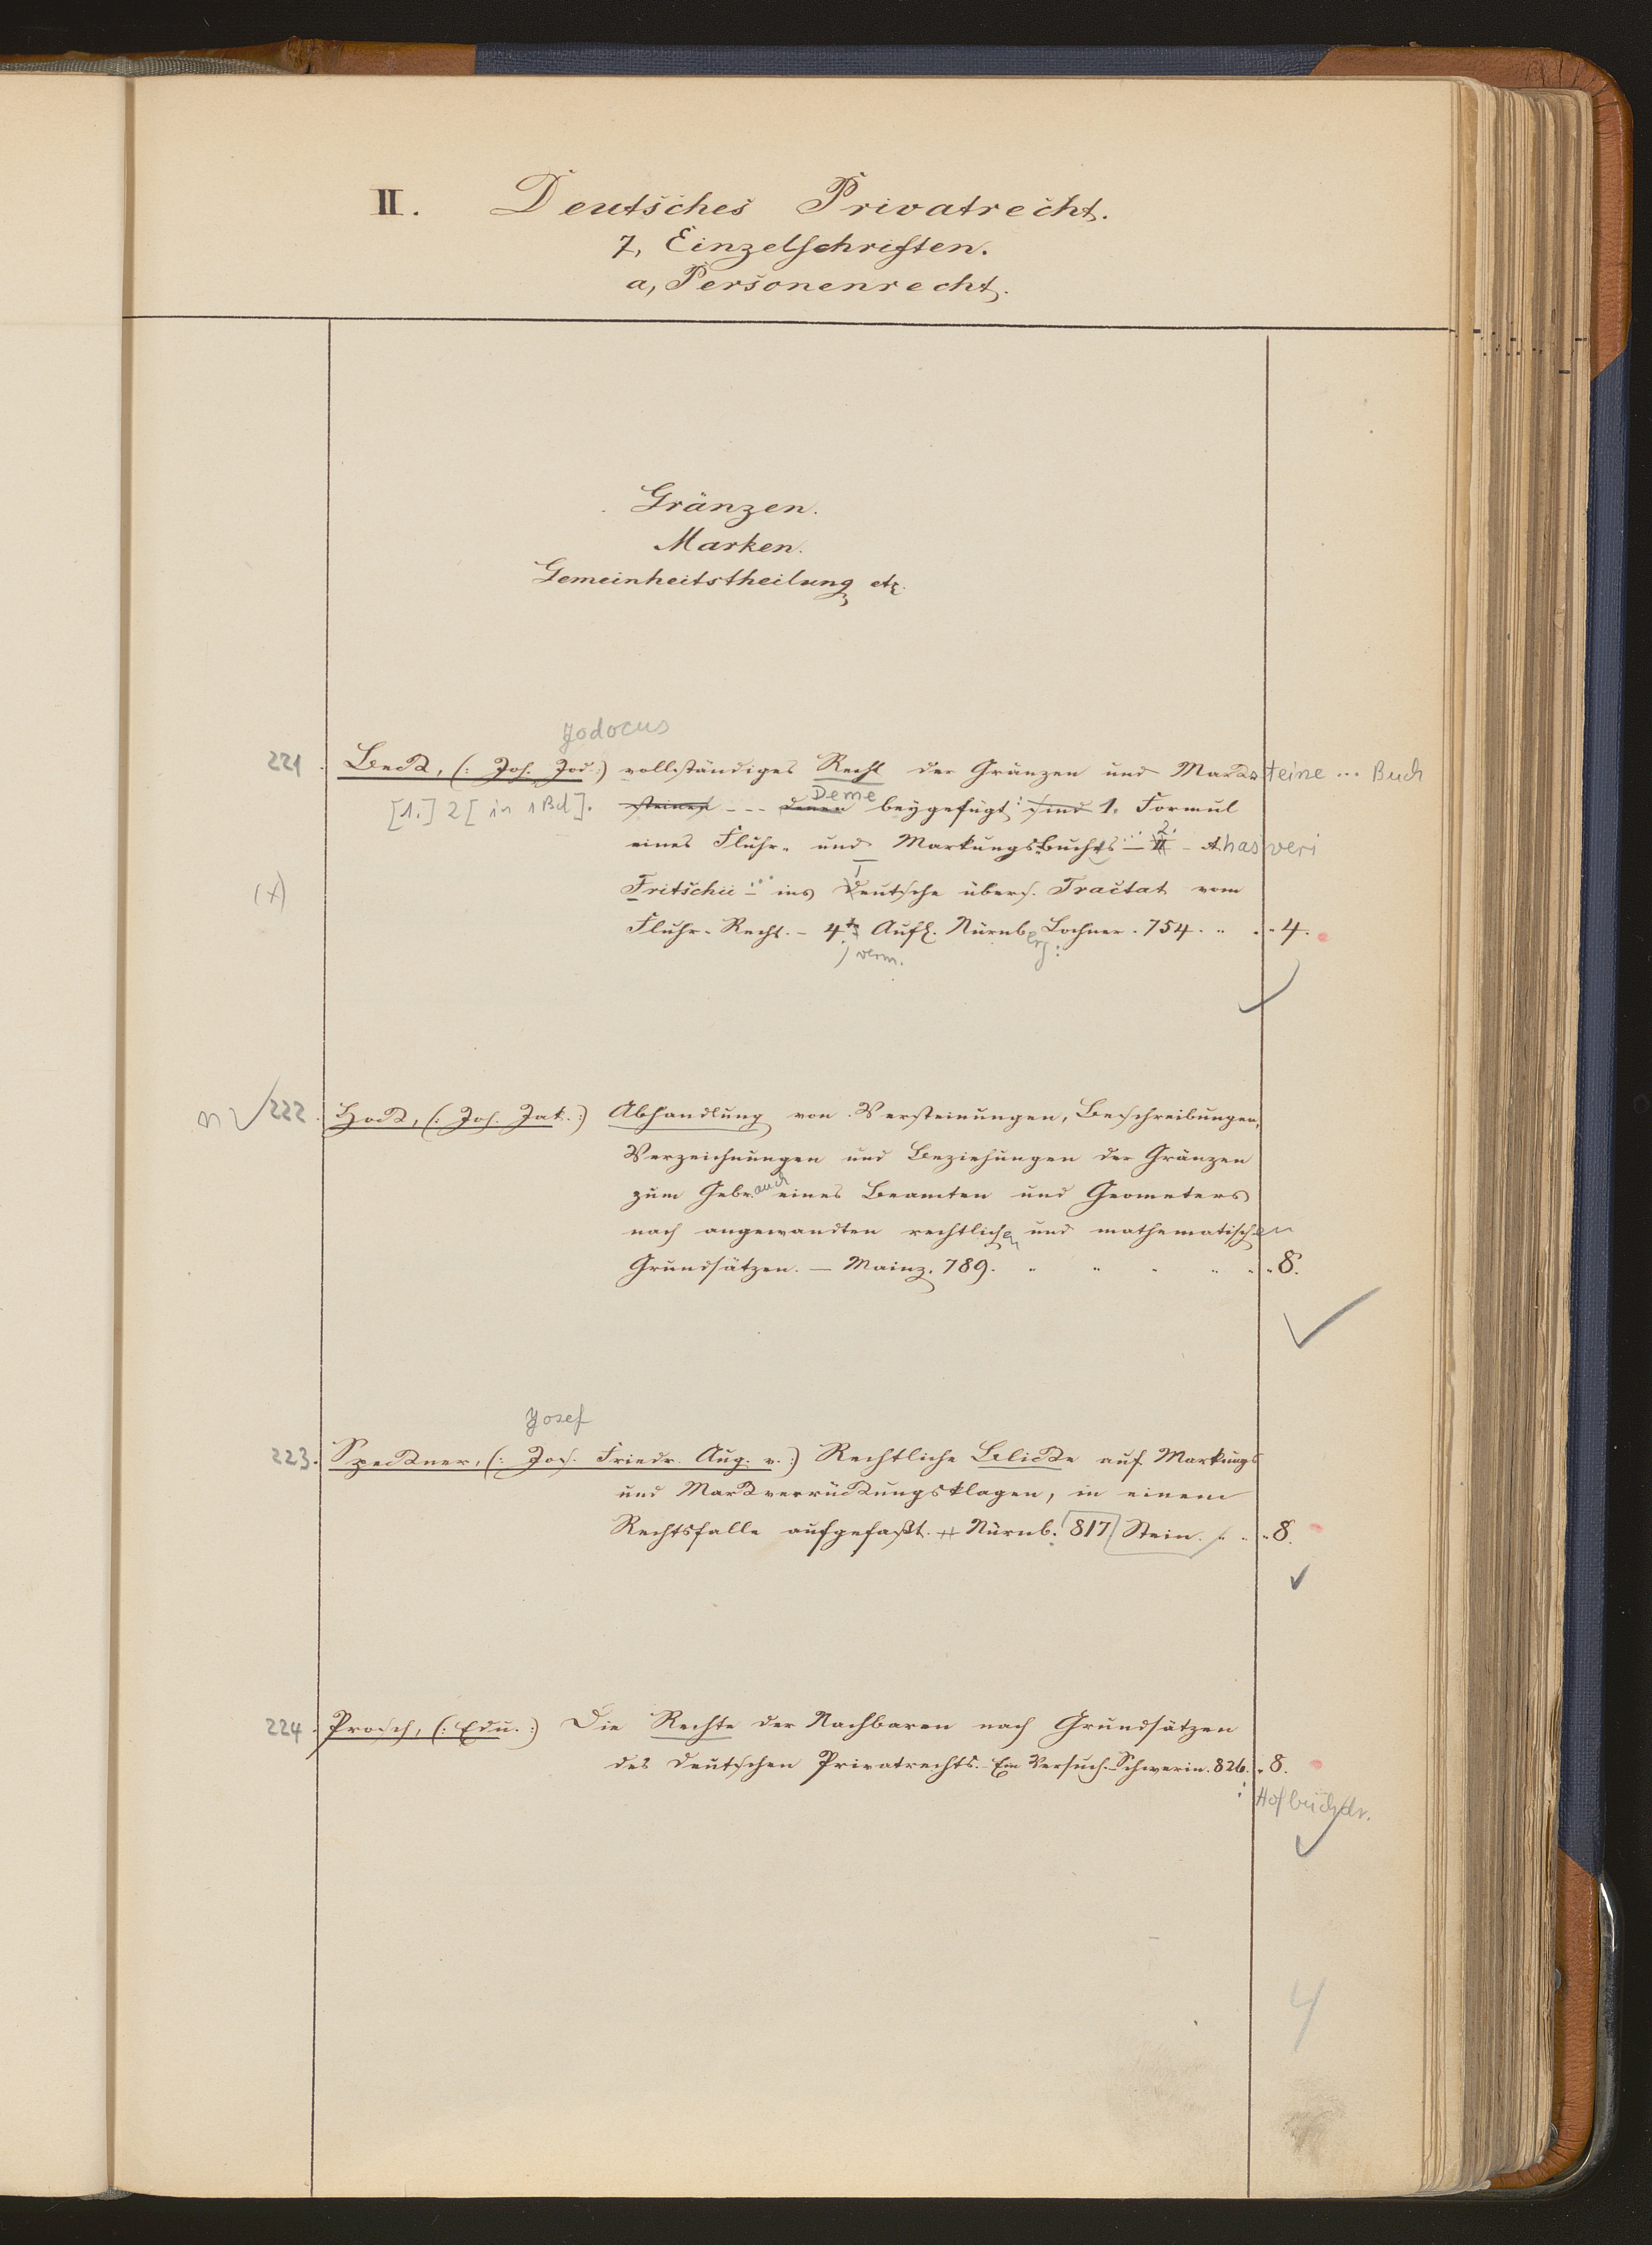 II. Deutsches Privatrecht.
7, Einzelschriften.
a, Personenrecht.
Gränzen.
Marken.
Gemeinheitstheilung etc.
Jodocus
221. Beck, (: Joh. Jod :) vollständiges Recht der Gränzen und Marksteine ... Buch
[1.] 2 [in 1 Bd]. steinen --- denen Deme beygefügt: sind 1. Formul
eines Fluhr- und Markungsbuchs ... – II 2. – Ahasveri
(x) Fritschii ... ins Deutsche übers. Tractat vom
Fluhr-Recht. – 4te Aufl. Nürnberg: Lochner. 754. 4.
verm.
n 222. Hock, (: Joh. Jak. :) Abhandlung von Versteinungen, Beschreibungen,
Verzeichnungen und Beziehungen der Gränzen
zum Gebrauch eines Beamten und Geometers
nach angewandten rechtlichen und mathematischen
Grundsätzen. – Mainz. 789. 8.
Josef
223. Speckner, (: Jos. Friedr. Aug. v. :) Rechtliche Blicke auf Markungs
und Markverrückungsklagen, in einem
Rechtsfalle aufgefaßt. Nürnb. 817 Stein. 8.
224. Prosch, (: Edu. :) Die Rechte der Nachbaren nach Grundsätzen
des deutschen Privatrechts. – Ein Versuch. – Schwerin. 826. 8.
: Hofbuchdr.
4